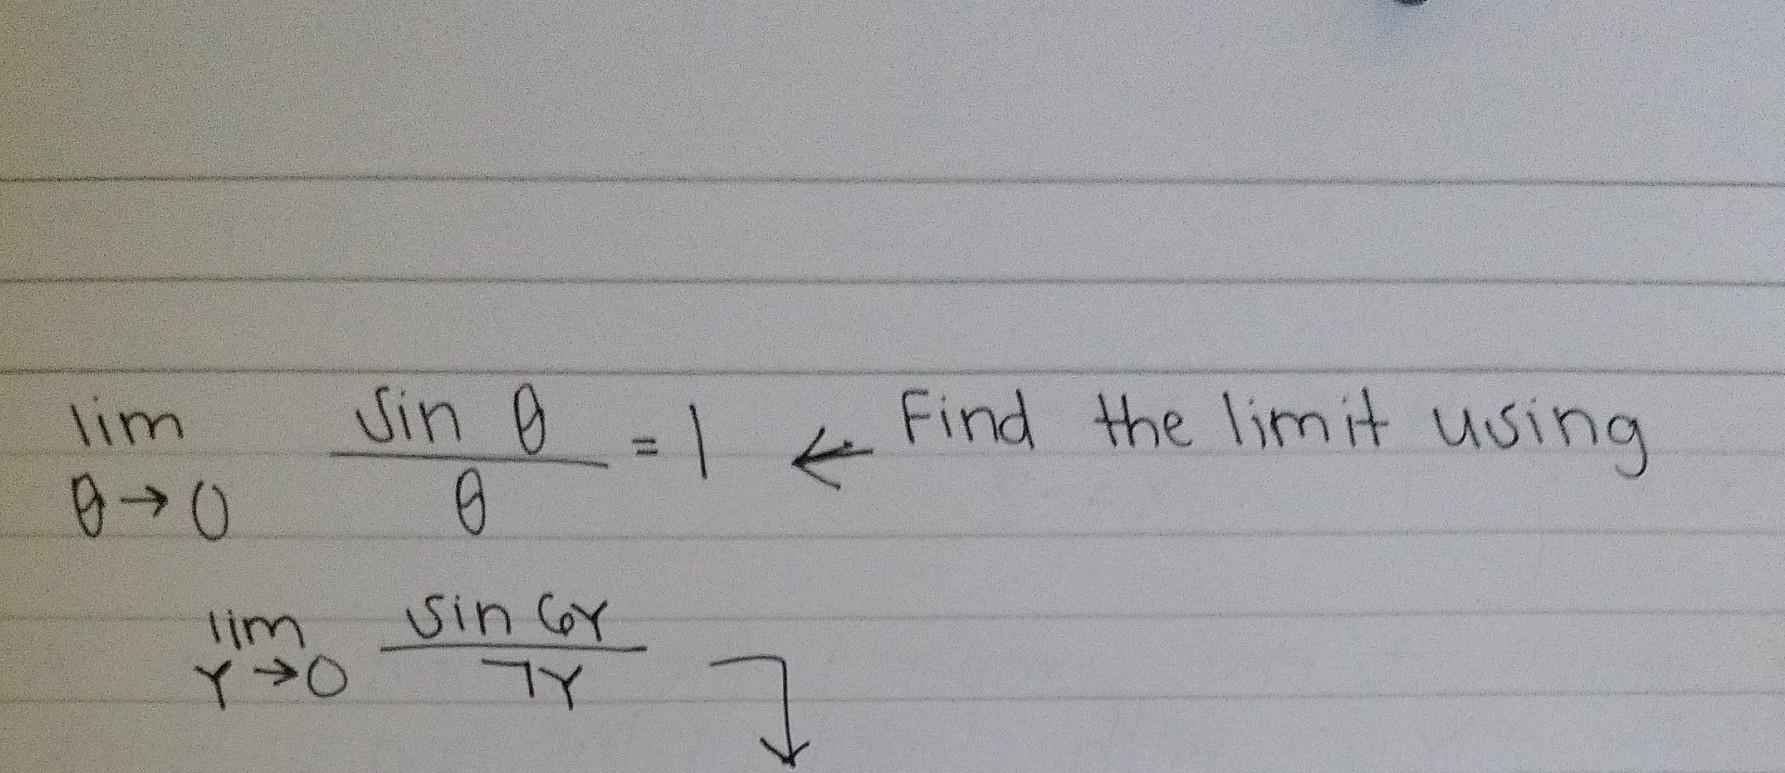 lim sin θ / θ = 1 ← Find the limit using
θ→0
lim sin 6Y / 7Y
Y→0